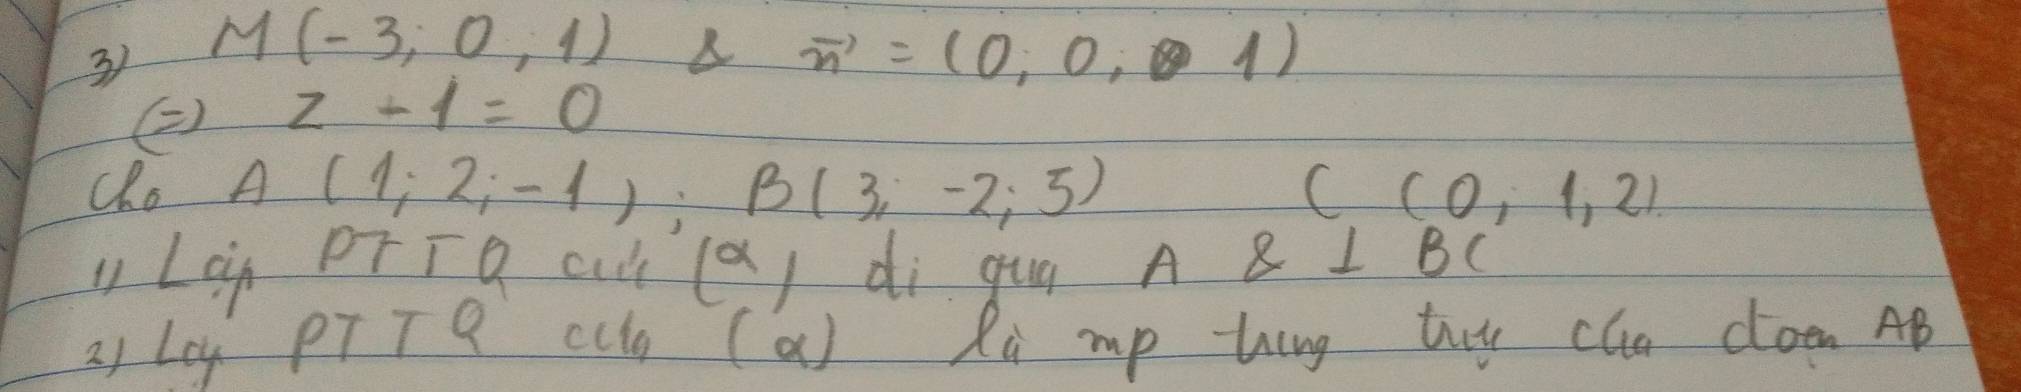 3) M(-3; 0; 1) & n⃗ = (0; 0; 1)
(=) z - 1 = 0
Cho A (1; 2; -1); B(3; -2; 5) C (0; 1; 2)
1) Lập PTTQ của (α) đi qua A & ⊥ BC
2) Lập PTTQ của (α) là mp trung trực của đoạn AB